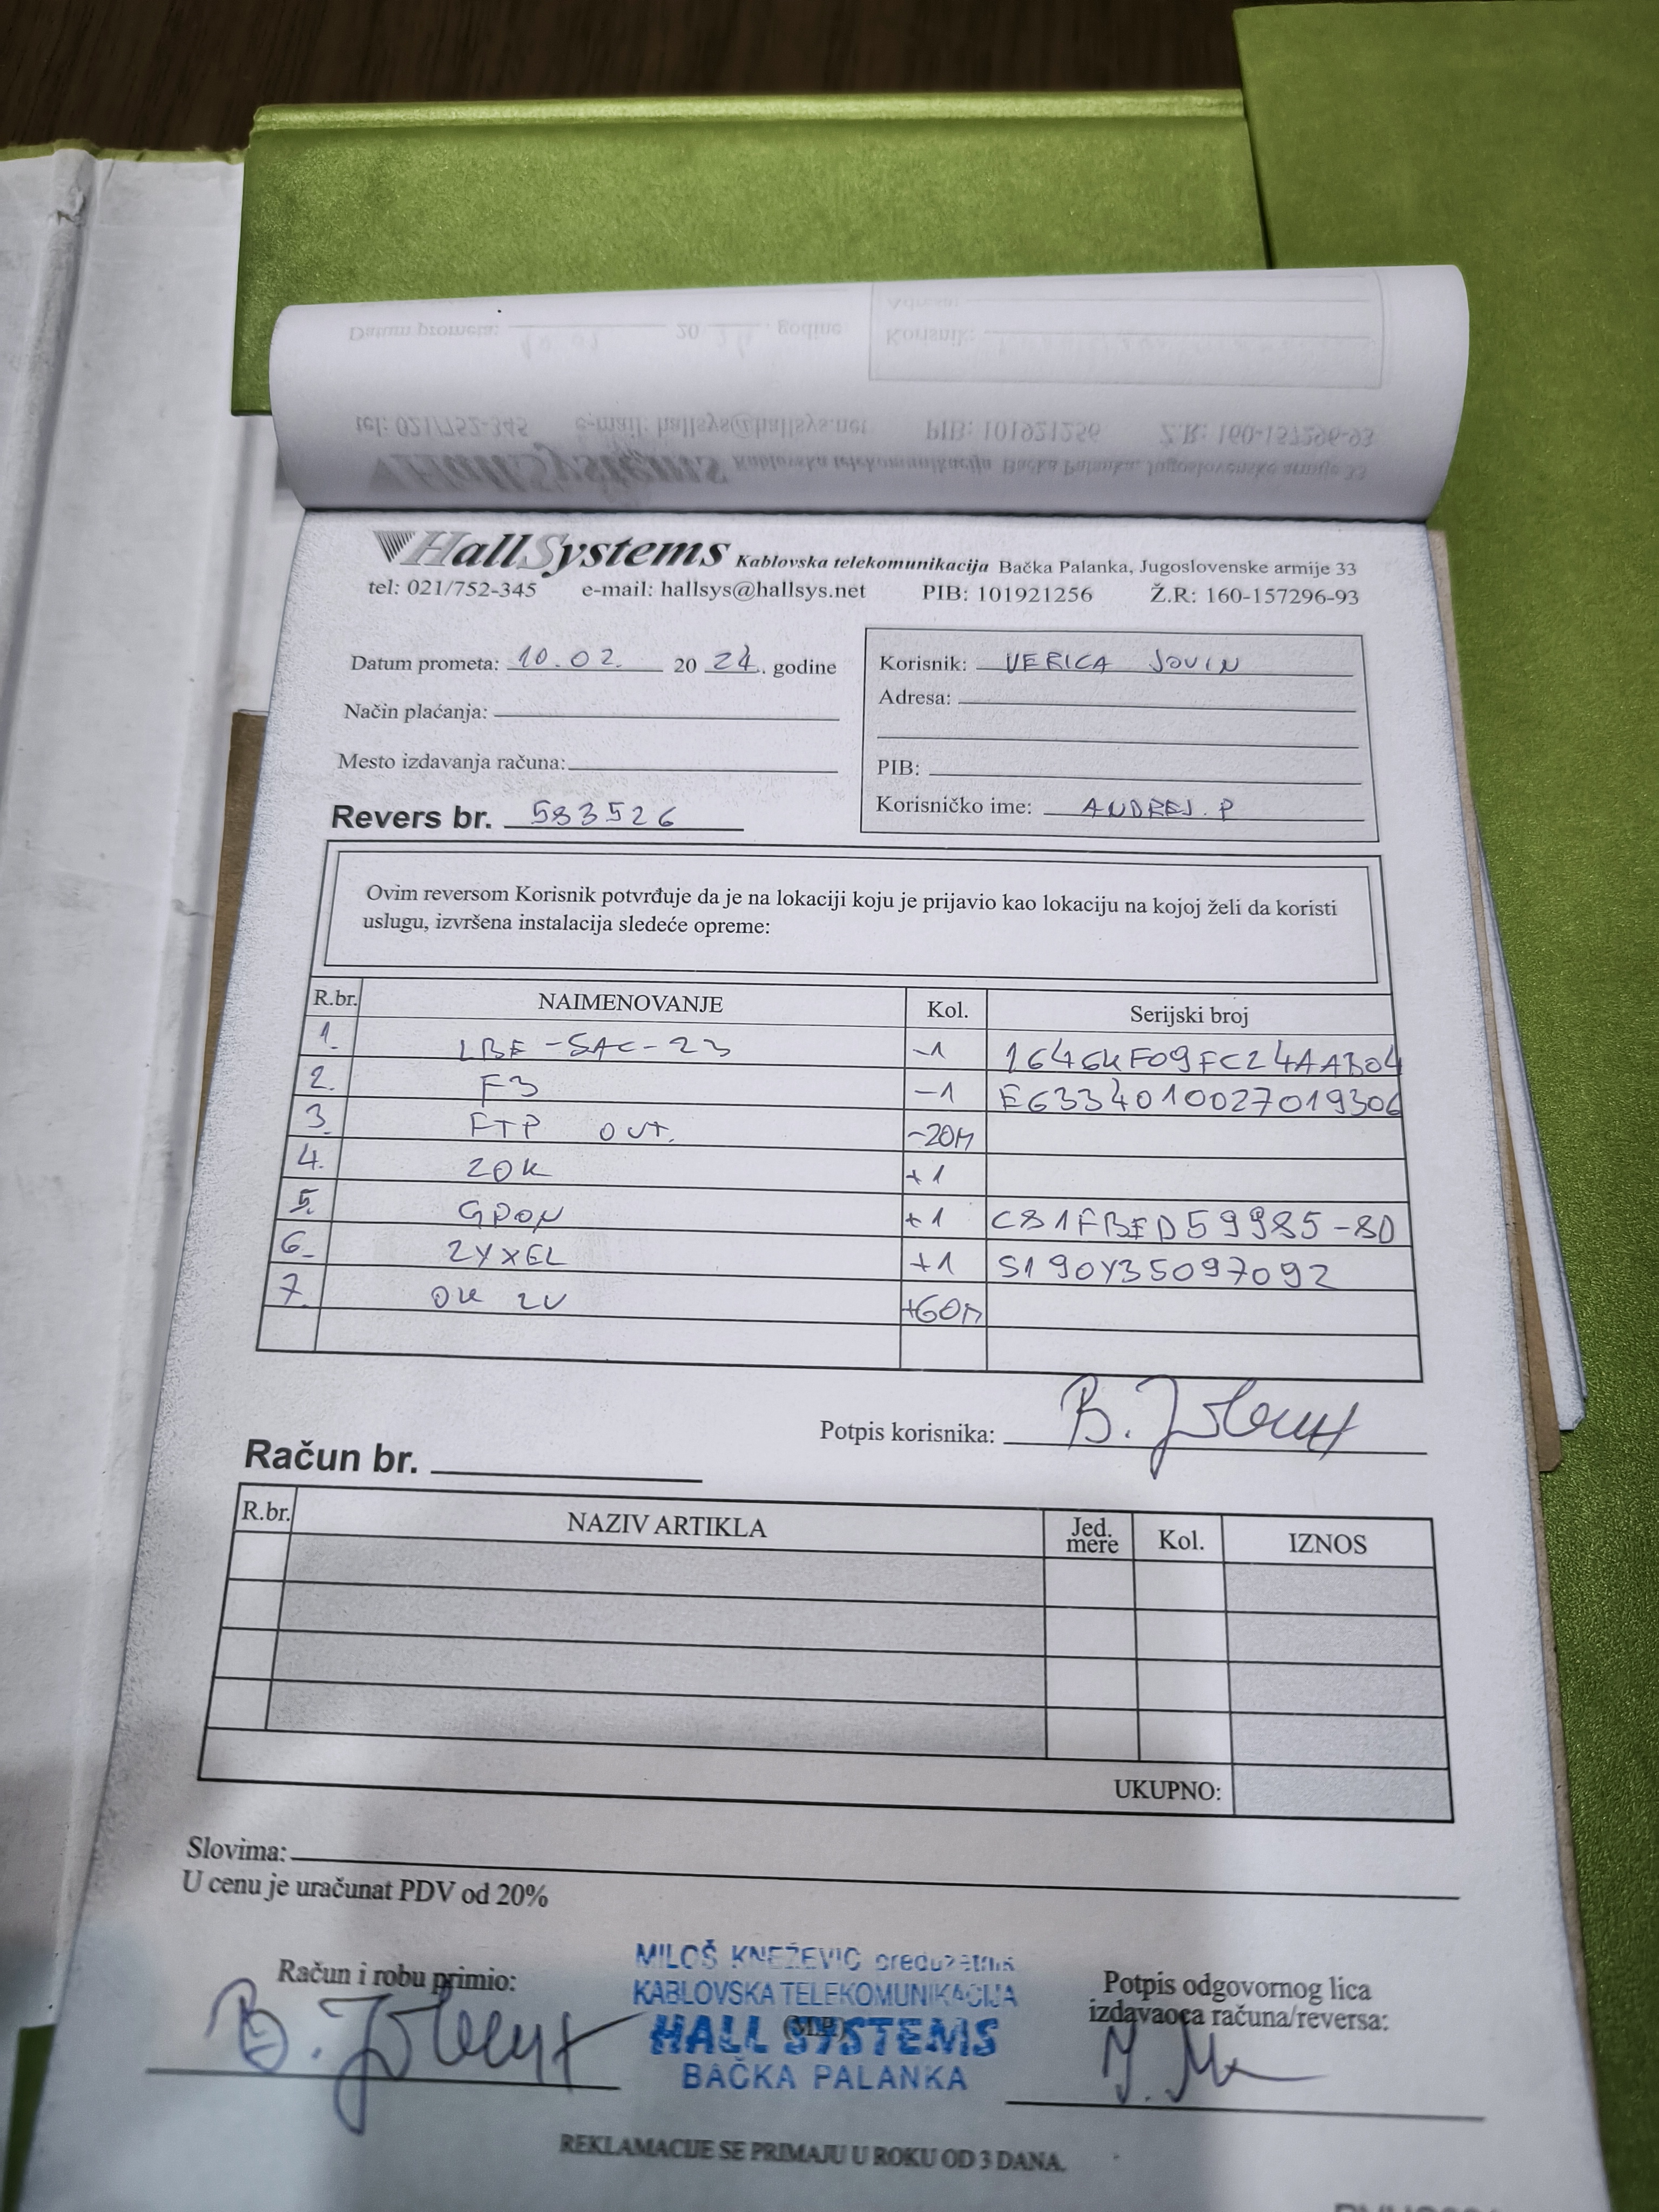 HallSystems Kablovska telekomunikacija Bačka Palanka, Jugoslovenske armije 33
tel: 021/752-345 e-mail: hallsys@hallsys.net PIB: 101921256 Ž.R: 160-157296-93
Datum prometa: 10.02. 20 24. godine
Način plaćanja:
Mesto izdavanja računa:
Revers br. 583526
Korisnik: VERICA JOVIN
Adresa:
PIB:
Korisničko ime: ANDREJ.P
Ovim reversom Korisnik potvrđuje da je na lokaciji koju je prijavio kao lokaciju na kojoj želi da koristi
uslugu, izvršena instalacija sledeće opreme:
R.br. NAIMENOVANJE Kol. Serijski broj
1. LBE-5AC-23 -1 1646KF09FC24AAB04
2. F3 -1 EG33401002701930
3. FTP OUT. -20M
4. ZOK +1
5. GPON +1 C81FBED59985-80
6. ZYXEL +1 S190Y35097092
7. OK 2V +60M
Potpis korisnika:
Račun br.
R.br. NAZIV ARTIKLA Jed. mere Kol. IZNOS
UKUPNO:
Slovima:
U cenu je uračunat PDV od 20%
Račun i robu primio:
MILOŠ KNEŽEVIĆ preduzetnik
KABLOVSKA TELEKOMUNIKACIJA
(M.P.)
HALL SYSTEMS
BAČKA PALANKA
Potpis odgovornog lica
izdavaoca računa/reversa:
REKLAMACIJE SE PRIMAJU U ROKU OD 3 DANA.